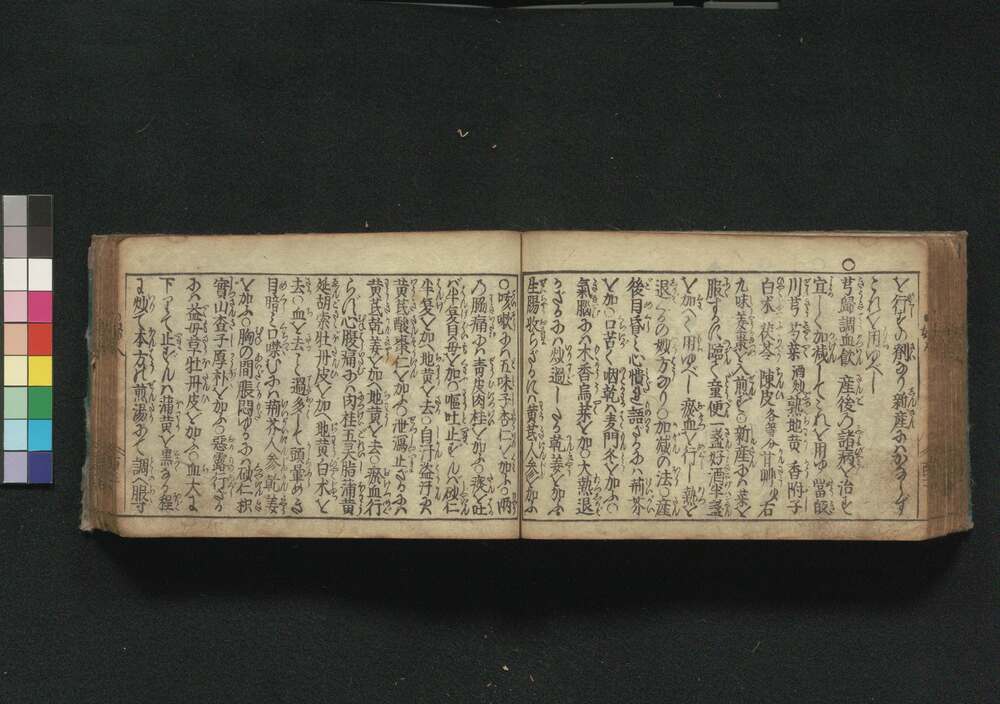 を行らすの剤あり新産にかぎらず
これを用ゆべし
芎歸調血飲 産後の諸病を治す
宜しく加減してこれを用ゆ 當歸
川芎 益母葉 酒炒 熟地黄 香附子
白朮 茯苓 陳皮 各等分 甘草 少 右
九味姜棗を入煎ず○新産には葉を
服するに臨て童便一盞好酒半盞
を加へて用ゆべし 瘀血を行し熱を
退くるの妙方なり○加減の法○産
後目昏く心憒々語るには荊芥
を加ふ○口苦く咽乾は麦門冬を加ふ○
氣脳には木香烏薬を加ふ○大熱退
かざるには炒過したる乾姜を加ふ
生腸收らざるには黄芪人参を加ふ
○咳嗽には五味子杏仁を加ふ○両
の脇痛には青皮肉桂を加ふ○痰を吐
ハ半夏貝母を加ふ○嘔吐止ざるハ砂仁
半夏を加へ地黄を去○自汗盗汗には
黄芪酸棗仁を加ふ○泄瀉止ざるには
黄芪乾姜を加へ地黄を去○瘀血行
られ心腹痛には肉桂五灵脂蒲黄
延胡索牡丹皮を加へ地黄白朮を
去○血を去こと過多して頭暈めき
目暗く口噤むには荊芥人参乾姜
を加ふ○胸の間脹悶ゆるには砂仁枳
實山査子厚朴を加ふ○惡露行ざる
には益母草牡丹皮を加ふ○血大に
下りて止ざるハ蒲黄を黒くなる程
に炒て本方の煎湯にて調へ服す